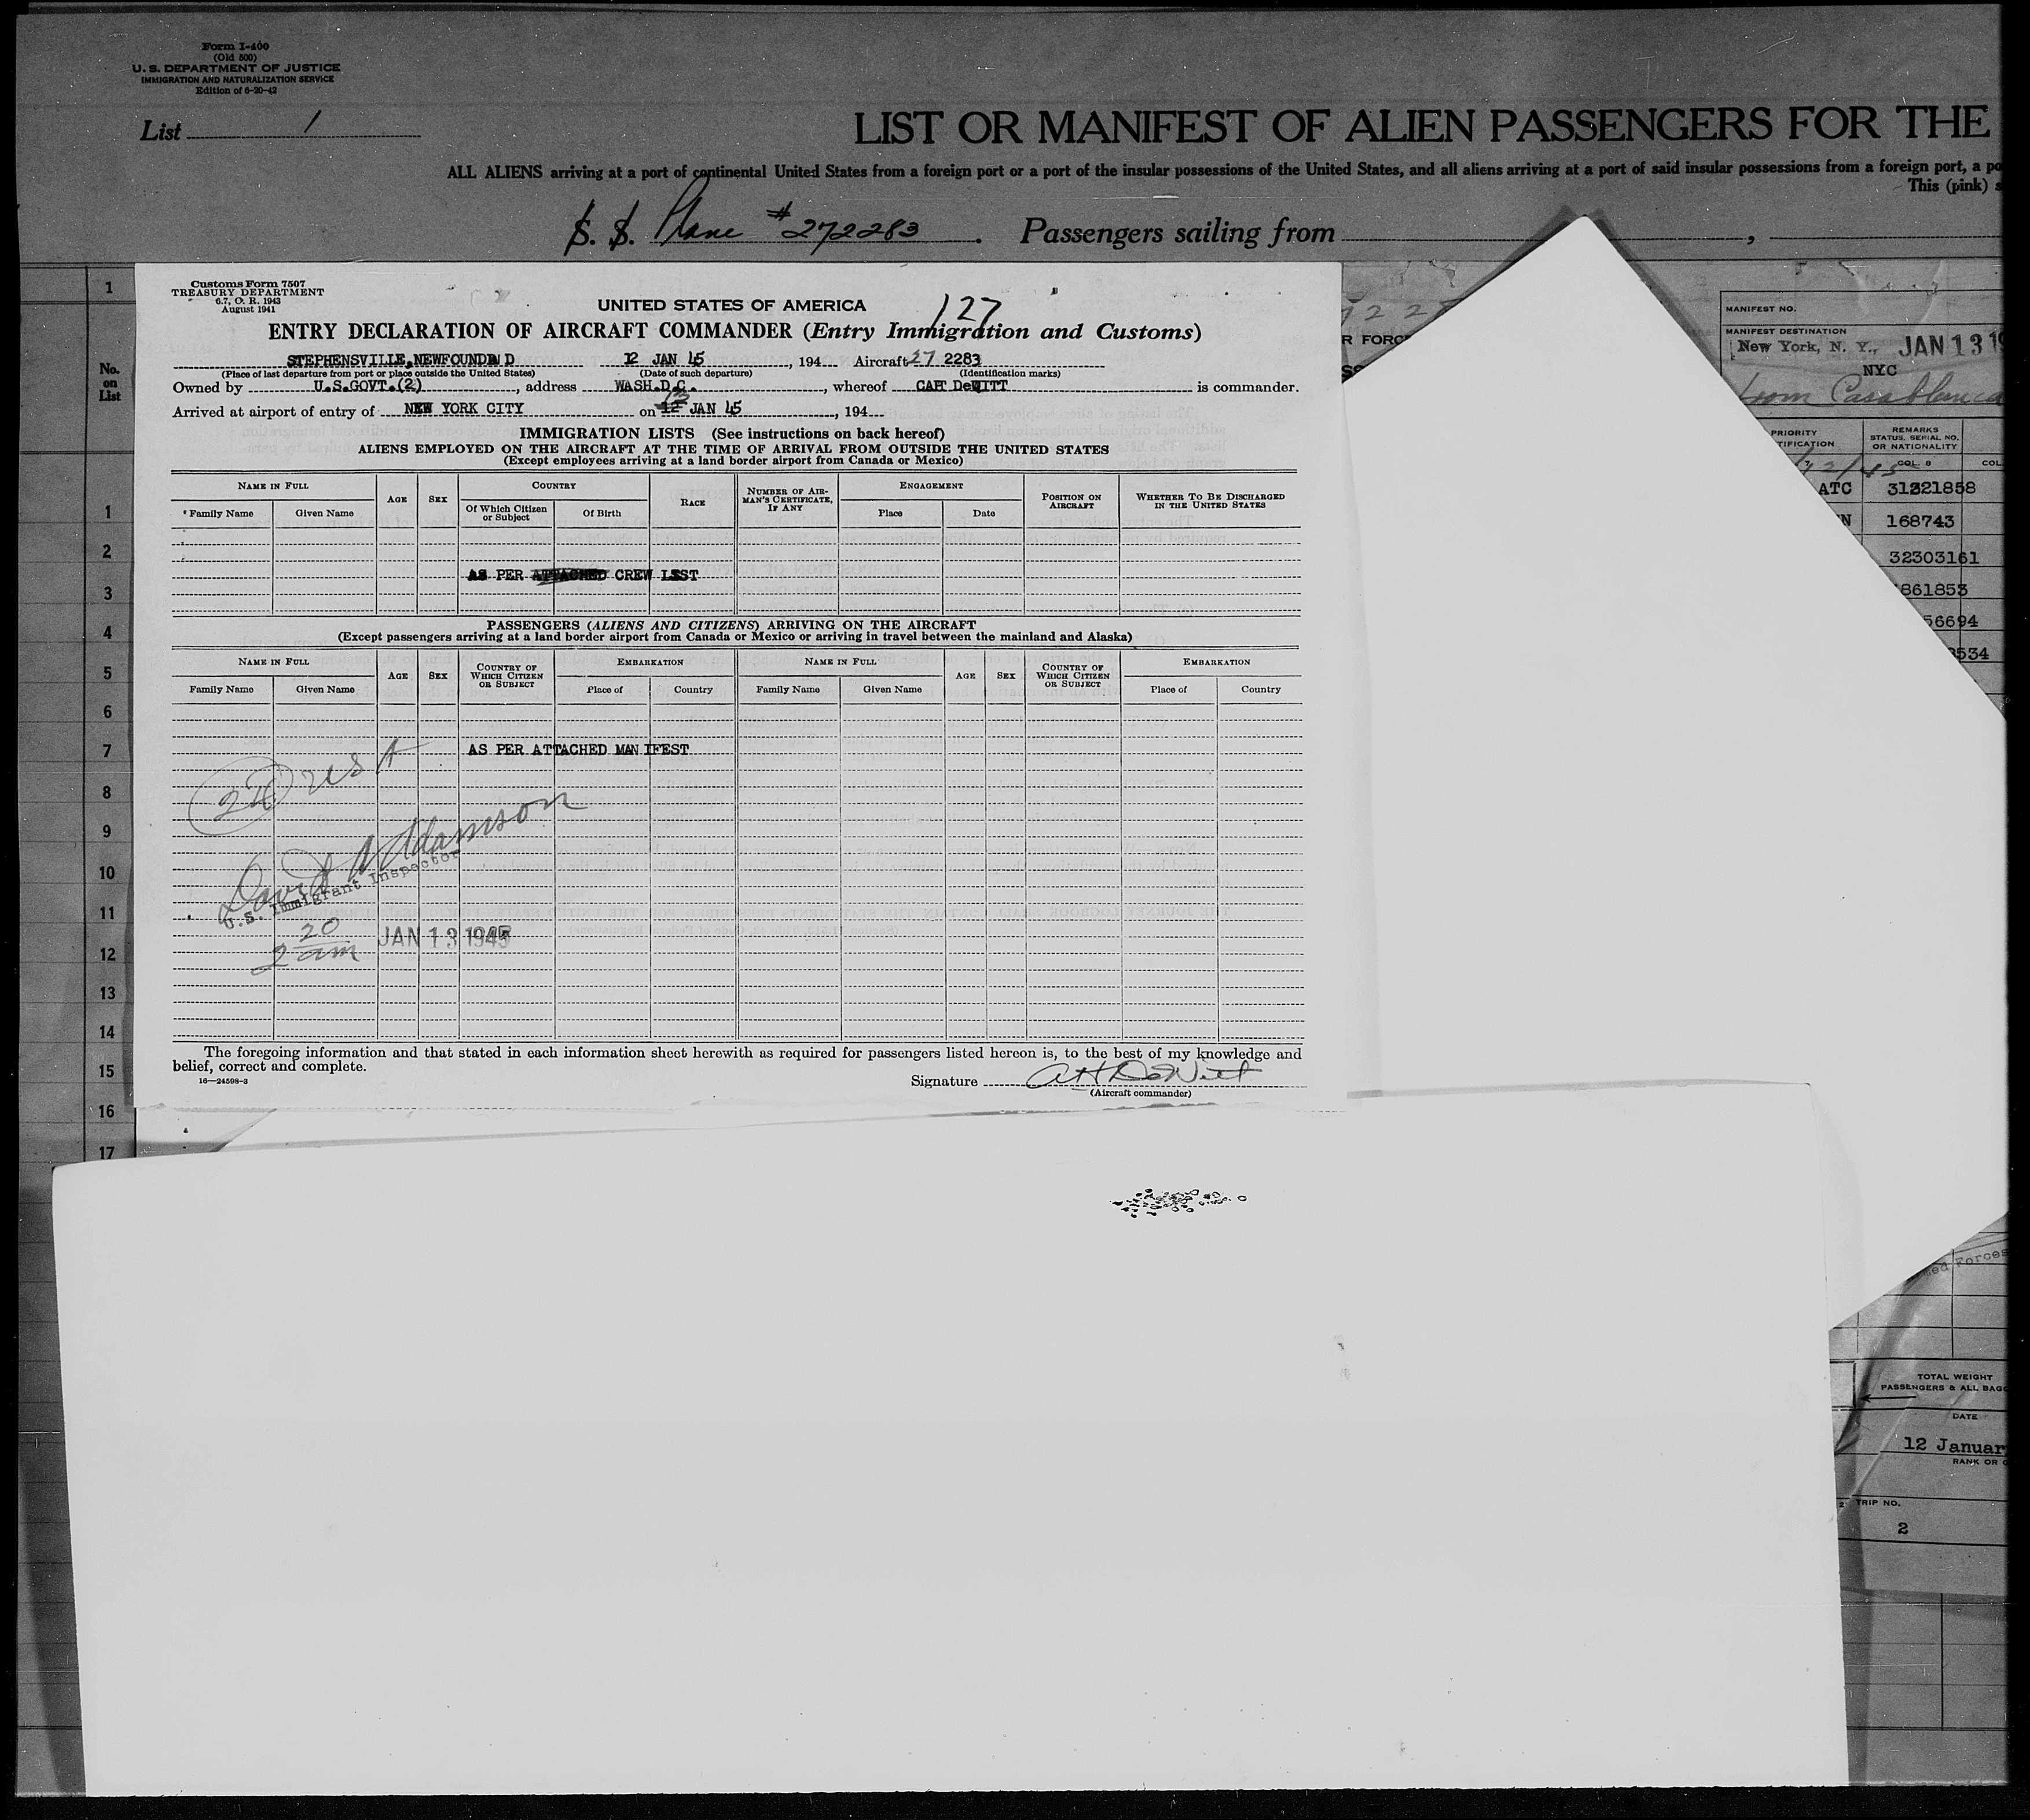 Form I-400
(Old 500)
U. S. DEPARTMENT OF JUSTICE
IMMIGRATION AND NATURALIZATION SERVICE
Edition of 6-20-42
List 1
LIST OR MANIFEST OF ALIEN PASSENGERS FOR THE
ALL ALIENS arriving at a port of continental United States from a foreign port or a port of the insular possessions of the United States, and all aliens arriving at a port of said insular possessions from a foreign port, a po
This (pink) s
S. S. Plane #272283. Passengers sailing from ,
1
No. on List
1
2
3
4
5
6
7
8
9
10
11
12
13
14
15
16
17
Customs Form 7507
TREASURY DEPARTMENT
6.7, O. R. 1943
August 1941
127
UNITED STATES OF AMERICA
ENTRY DECLARATION OF AIRCRAFT COMMANDER (Entry Immigration and Customs)
STEPHENSVILLE,NEWFOUND D 12 JAN 45, 194 Aircraft 27 2283
(Place of last departure from port or place outside the United States) (Date of such departure) (Identification marks)
Owned by U.S.GOVT.(2), address WASH.D.C., whereof DeWITT is commander.
13
Arrived at airport of entry of NEW YORK CITY on 12 JAN 45, 194
IMMIGRATION LISTS (See instructions on back hereof)
ALIENS EMPLOYED ON THE AIRCRAFT AT THE TIME OF ARRIVAL FROM OUTSIDE THE UNITED STATES
(Except employees arriving at a land border airport from Canada or Mexico)
NAME IN FULL AGE SEX COUNTRY RACE NUMBER OF AIRMAN'S CERTIFICATE, IF ANY ENGAGEMENT POSITION ON AIRCRAFT WHETHER TO BE DISCHARGED IN THE UNITED STATES
Family Name Given Name Of Which Citizen or Subject Of Birth Place Date
AS PER ATTACHED CREW LIST
PASSENGERS (ALIENS AND CITIZENS) ARRIVING ON THE AIRCRAFT
(Except passengers arriving at a land border airport from Canada or Mexico or arriving in travel between the mainland and Alaska)
NAME IN FULL AGE SEX COUNTRY OF WHICH CITIZEN OR SUBJECT EMBARKATION NAME IN FULL AGE SEX COUNTRY OF WHICH CITIZEN OR SUBJECT EMBARKATION
Family Name Given Name Place of Country Family Name Given Name Place of Country
AS PER ATTACHED MAN IFEST
David A Adamson
U.S. Immigrant Inspector
2 20 am JAN 13 1945
The foregoing information and that stated in each information sheet herewith as required for passengers listed hereon is, to the best of my knowledge and
belief, correct and complete.
16—24598-3
Signature A H DeWitt
(Aircraft commander)
R FORC
MANIFEST NO.
MANIFEST DESTINATION
New York, N. Y., JAN 13 19
NYC
from Casablanca
PRIORITY
TIFICATION
REMARKS
STATUS, SERIAL NO.
OR NATIONALITY
COL 8 COL
ATC 31321858
N 168743
32303161
861853
56694
3534
ed Forces
TOTAL WEIGHT
PASSENGERS & ALL BAGG
DATE
12 Januar
RANK OR
TRIP NO.
2